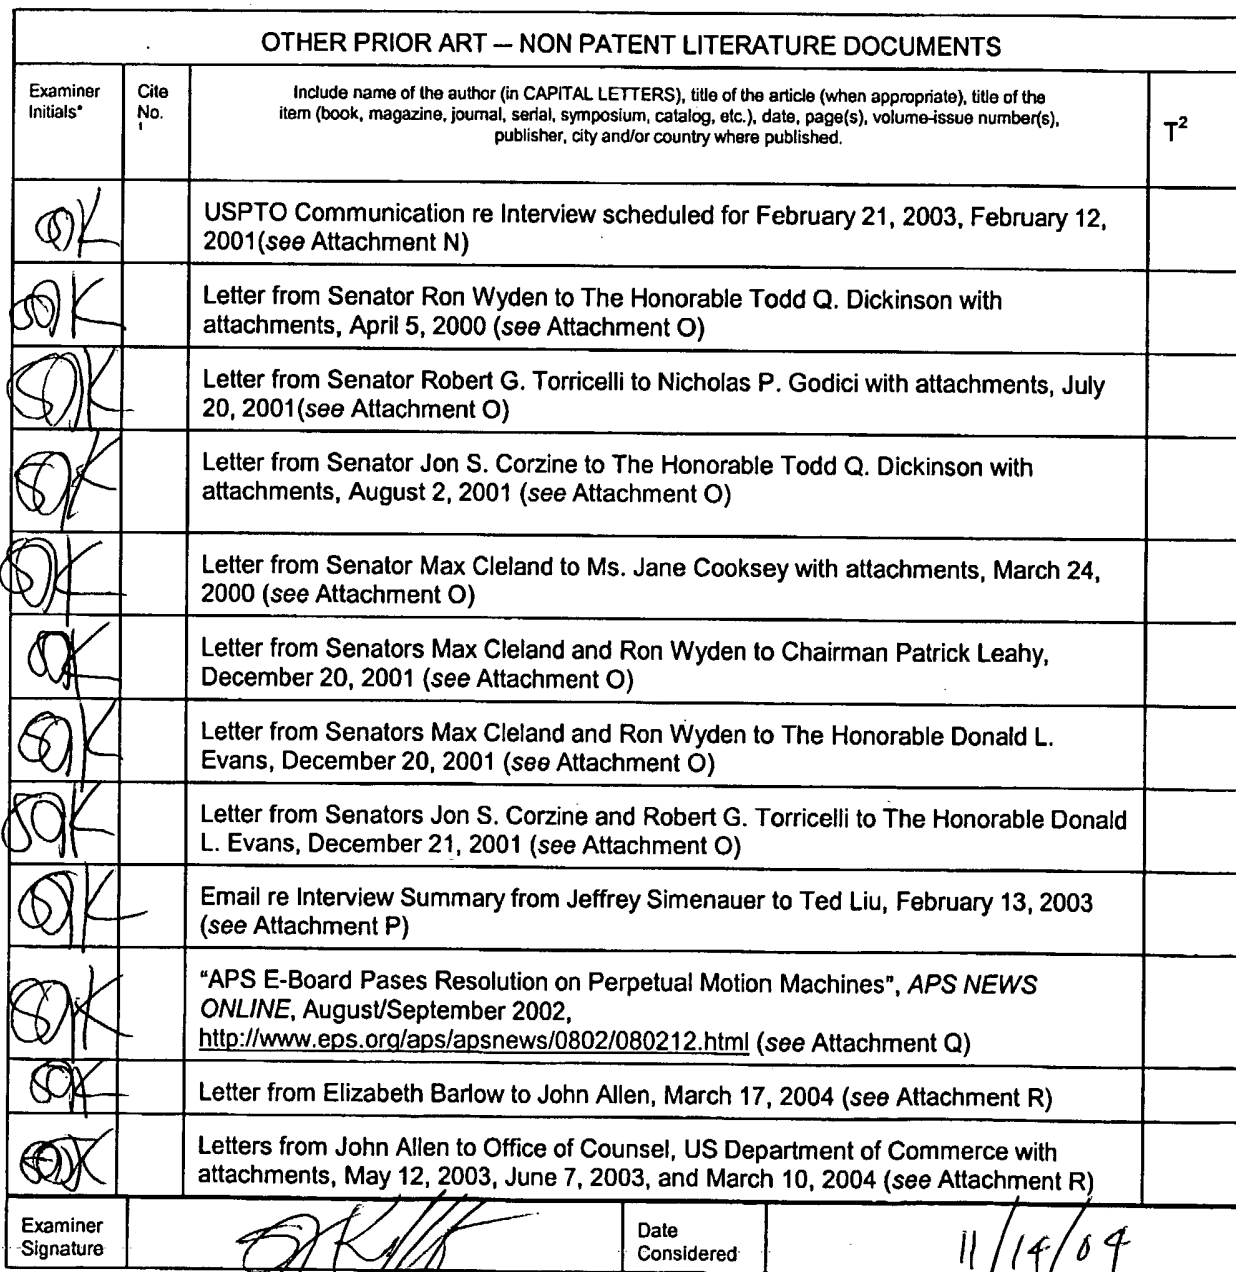 OTHER PRIOR ART – NON PATENT LITERATURE DOCUMENTS
Examiner Initials*
Cite No. 1
Include name of the author (in CAPITAL LETTERS), title of the article (when appropriate), title of the
item (book, magazine, journal, serial, symposium, catalog, etc.), date, page(s), volume-issue number(s),
publisher, city and/or country where published.
T2
USPTO Communication re Interview scheduled for February 21, 2003, February 12,
2001(see Attachment N)
Letter from Senator Ron Wyden to The Honorable Todd Q. Dickinson with
attachments, April 5, 2000 (see Attachment O)
Letter from Senator Robert G. Torricelli to Nicholas P. Godici with attachments, July
20, 2001(see Attachment O)
Letter from Senator Jon S. Corzine to The Honorable Todd Q. Dickinson with
attachments, August 2, 2001 (see Attachment O)
Letter from Senator Max Cleland to Ms. Jane Cooksey with attachments, March 24,
2000 (see Attachment O)
Letter from Senators Max Cleland and Ron Wyden to Chairman Patrick Leahy,
December 20, 2001 (see Attachment O)
Letter from Senators Max Cleland and Ron Wyden to The Honorable Donald L.
Evans, December 20, 2001 (see Attachment O)
Letter from Senators Jon S. Corzine and Robert G. Torricelli to The Honorable Donald
L. Evans, December 21, 2001 (see Attachment O)
Email re Interview Summary from Jeffrey Simenauer to Ted Liu, February 13, 2003
(see Attachment P)
"APS E-Board Pases Resolution on Perpetual Motion Machines", APS NEWS
ONLINE, August/September 2002,
http://www.eps.org/aps/apsnews/0802/080212.html (see Attachment Q)
Letter from Elizabeth Barlow to John Allen, March 17, 2004 (see Attachment R)
Letters from John Allen to Office of Counsel, US Department of Commerce with
attachments, May 12, 2003, June 7, 2003, and March 10, 2004 (see Attachment R)
Examiner Signature
Date Considered
11/14/04